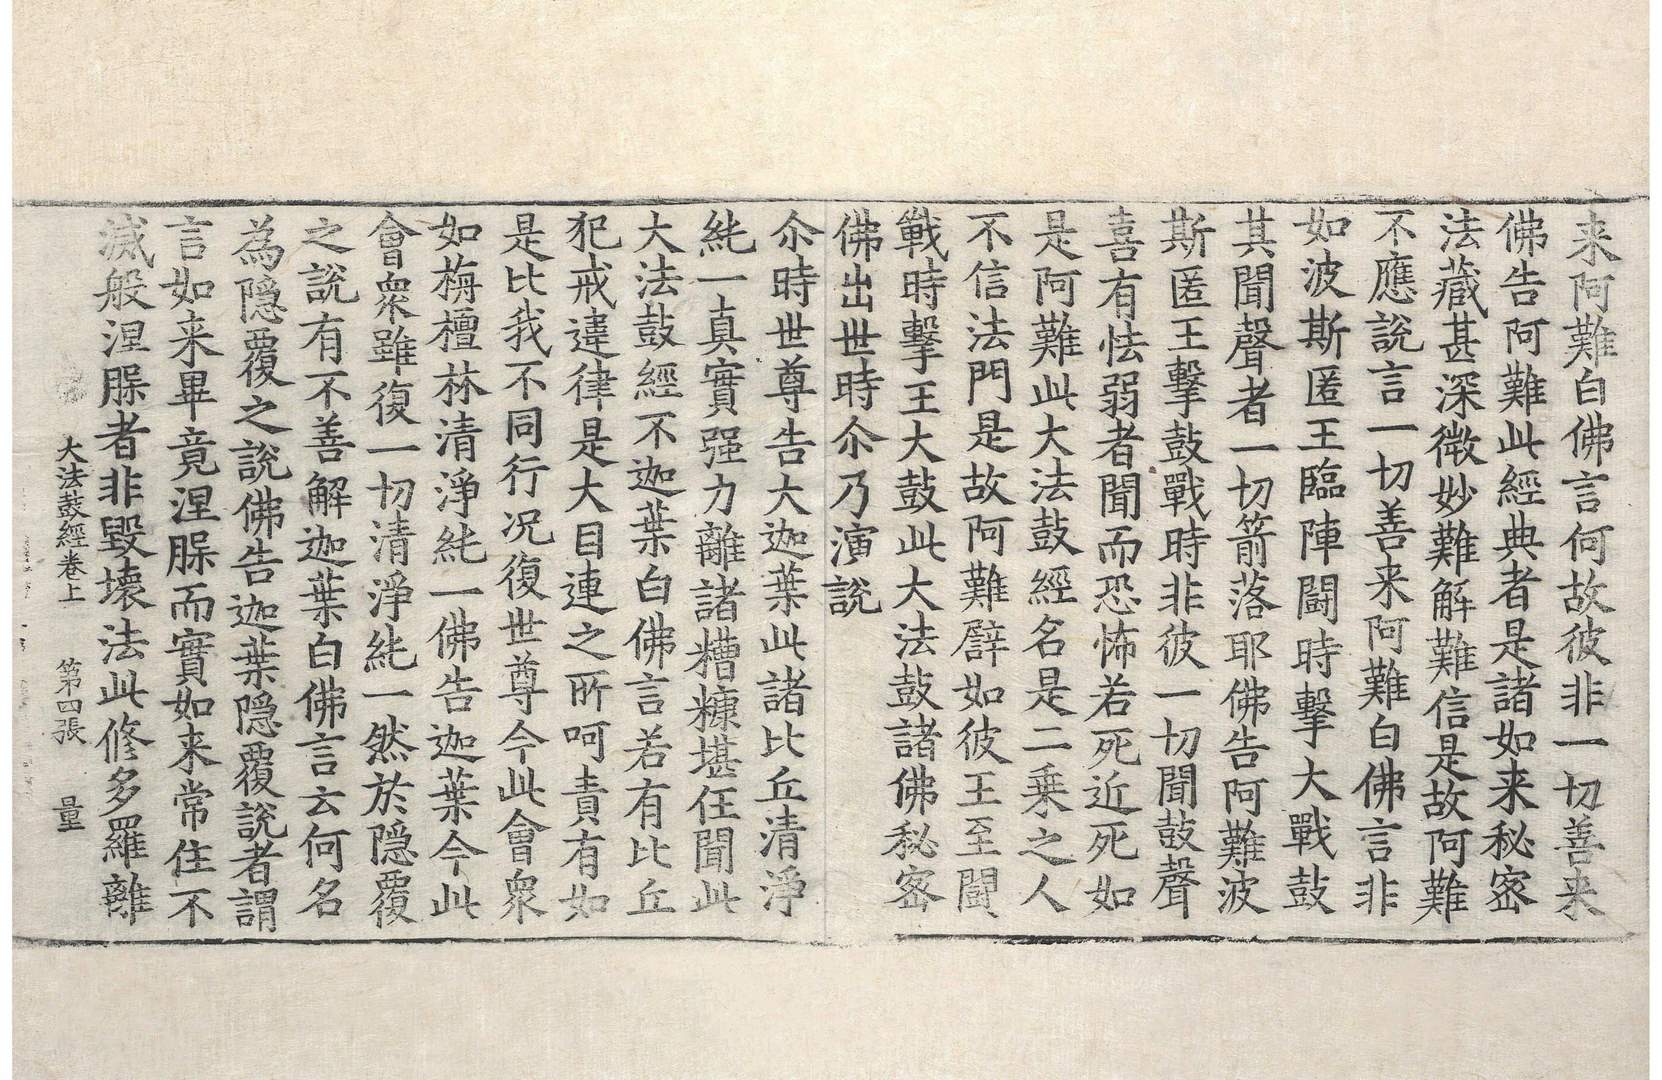 来阿難白佛言何故彼非一切善来
佛告阿難此經典者是諸如来秘密
法藏甚深微妙難解難信是故阿難
不應説言一切善来阿難白佛言非
如波斯匿王臨陣闘時擊大戰鼓
其聞聲者一切箭落耶佛告阿難波
斯匿王擊鼓戰時非彼一切聞鼓聲
喜有怯弱者聞而恐怖若死近死如
是阿難此大法鼓經名是二乗之人
不信法門是故阿難譬如彼王至闘
戰時擊王大鼓此大法鼓諸佛秘密
佛出世時尒乃演説
尒時世尊告大迦葉此諸比丘清淨
純一真實强力離諸糟糠堪任聞此
大法鼓經不迦葉白佛言若有比丘
犯戒違律是大目連之所呵責有如
是比我不同行况復世尊今此會衆
如栴檀林清淨純一佛告迦葉今此
會衆雖復一切清淨純一然於隠覆
之説有不善解迦葉白佛言云何名
為隠覆之説佛告迦葉隠覆説者謂
言如来畢竟涅槃而實如来常住不
滅般涅槃者非毀壞法此修多羅離
大法鼓經卷上 第四張 量